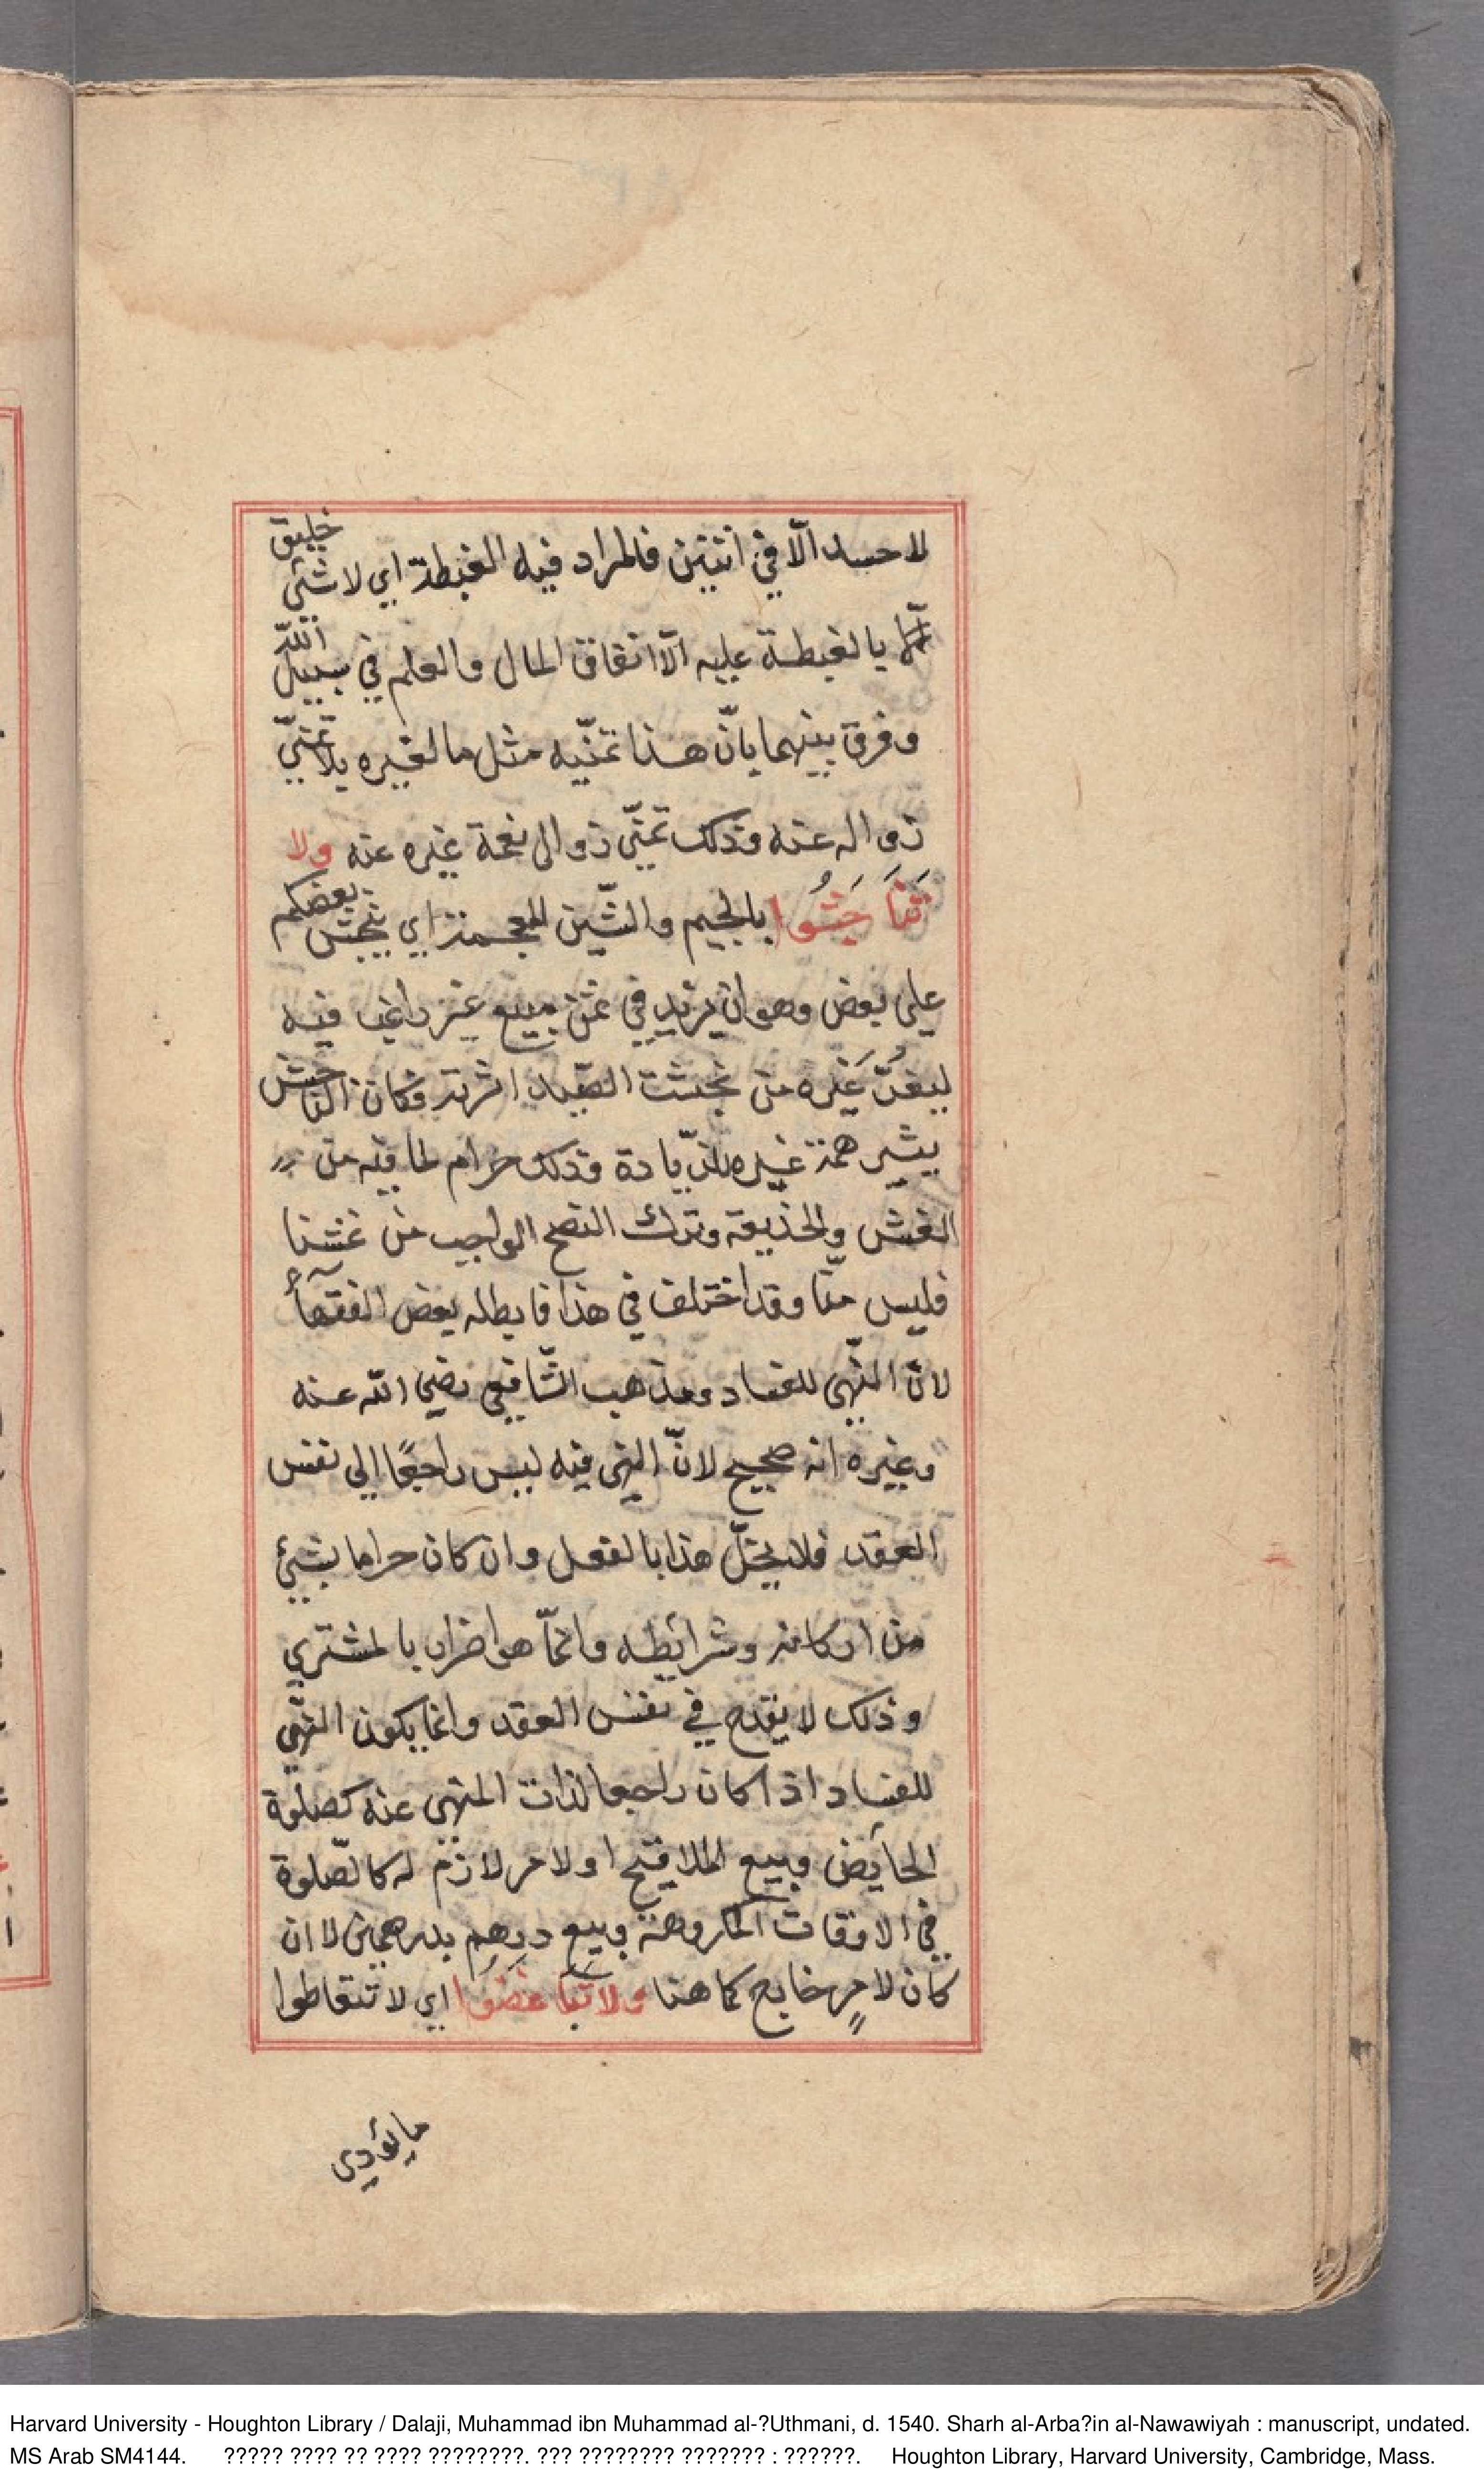 لا حسد الّا في اثنتين فالمراد فيه الغبطة اي لا شئ خليق
يا لغبطة عليه الّا انفاق المال والعلم في سبيل الله
وفرق بينهما بانّ هذا تمنّيه مثل ما لغيره بلا تمنّي
زواله عنه وذلك تمنّي زوال نعمة غيره عنه ولا
تَنَاجَشُوا بالجيم والشّين المعجمة اي ينجش بعضكم
علي بعض وهو ان يزيد في ثمن مبيع غير راغب فيه
ليغُرَّ غَيره من نجشت الصّيد اثرته فكان الناجش
يثير همة غيره للزّيادة وذلك حرام لما فيه من
الغش والخديعة وترك النصح الواجب من غشنا
فليس منّا وقد اختلف في هذا فابطله بعض الفقهآء
لانّ النّهي للفساد ومذهب الشّافعي رضي الله عنه
وغيره انه صحيح لانّ النهي فيه ليس راجعًا الي نفس
العقد فلا يخلّ هذا بالفعل وان كان حراما بشئ
من اركانه وشرائطه وانمّا هو اضرار بالمشتري
وذلك لا يقدح في نفس العقد وانما يكون النهّي
للفساد اذا كان راجعا لذات المنهي عنه كصلوة
الحائض وبيع الملاقيح او لامر لازم له كالصّلوة
في الاوقات المكروهة وبيع درهم بدرهمين لا ان
كان لامرٍ خارج كما هنا ولا تَبَاغضُوا اي لا تتعاطوا
ما يؤدي
Harvard University - Houghton Library / Dalaji, Muhammad ibn Muhammad al-?Uthmani, d. 1540. Sharh al-Arba?in al-Nawawiyah : manuscript, undated.
MS Arab SM4144. ????? ???? ?? ???? ????????. ??? ???????? ??????? : ??????. Houghton Library, Harvard University, Cambridge, Mass.